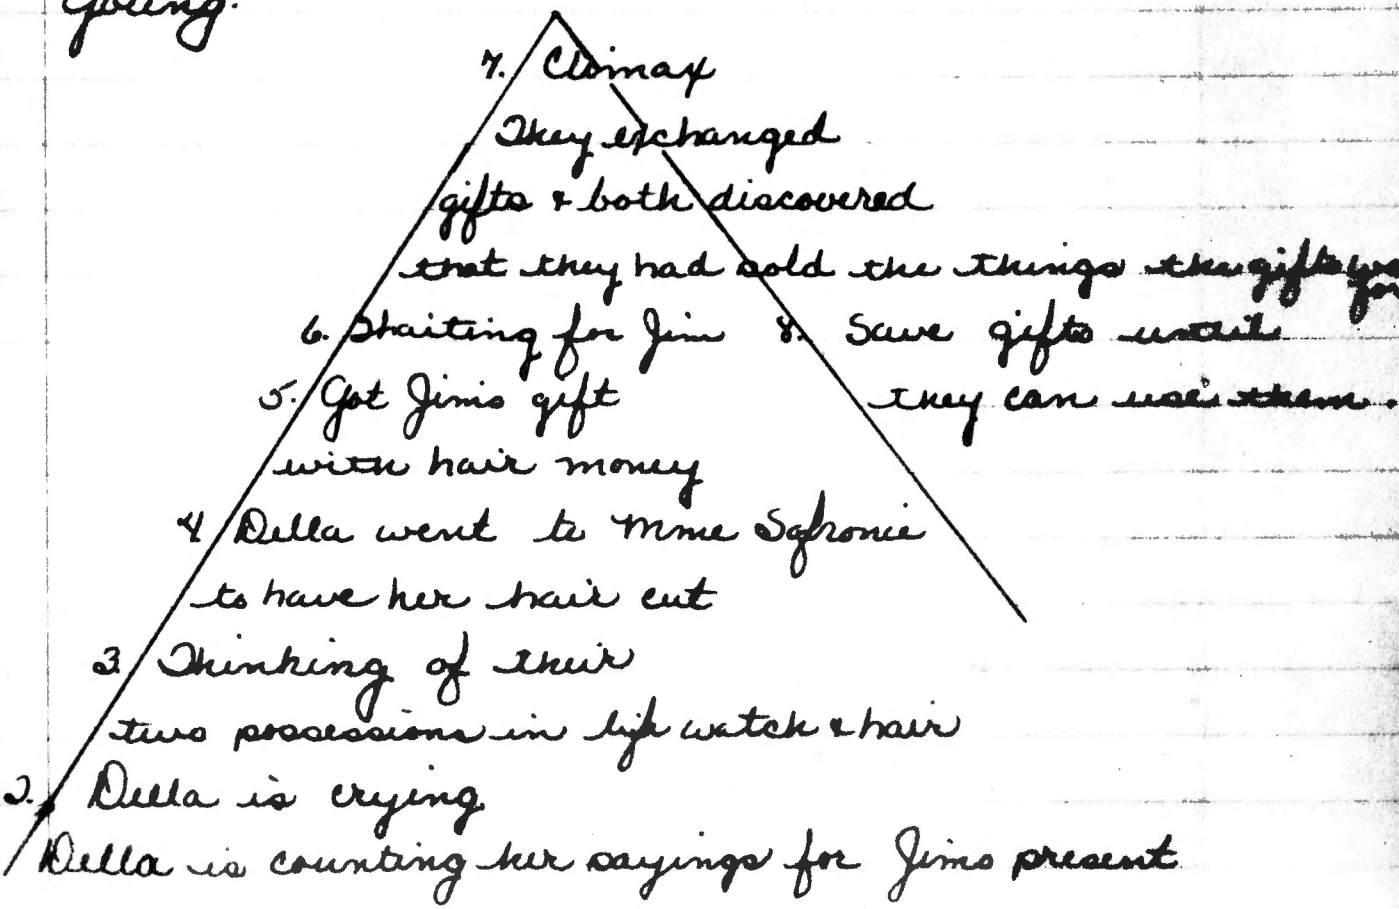 young.
7. Climax
They exchanged
gifts & both discovered
that they had sold the things the gifts were for
6. Waiting for Jim 8. Save gifts until
5. Got Jims gift they can use them.
with hair money
4 Della went to Mme Sofronie
to have her hair cut
3. Thinking of their
two possessions in life watch & hair
2. Della is crying
Della is counting her savings for Jims present